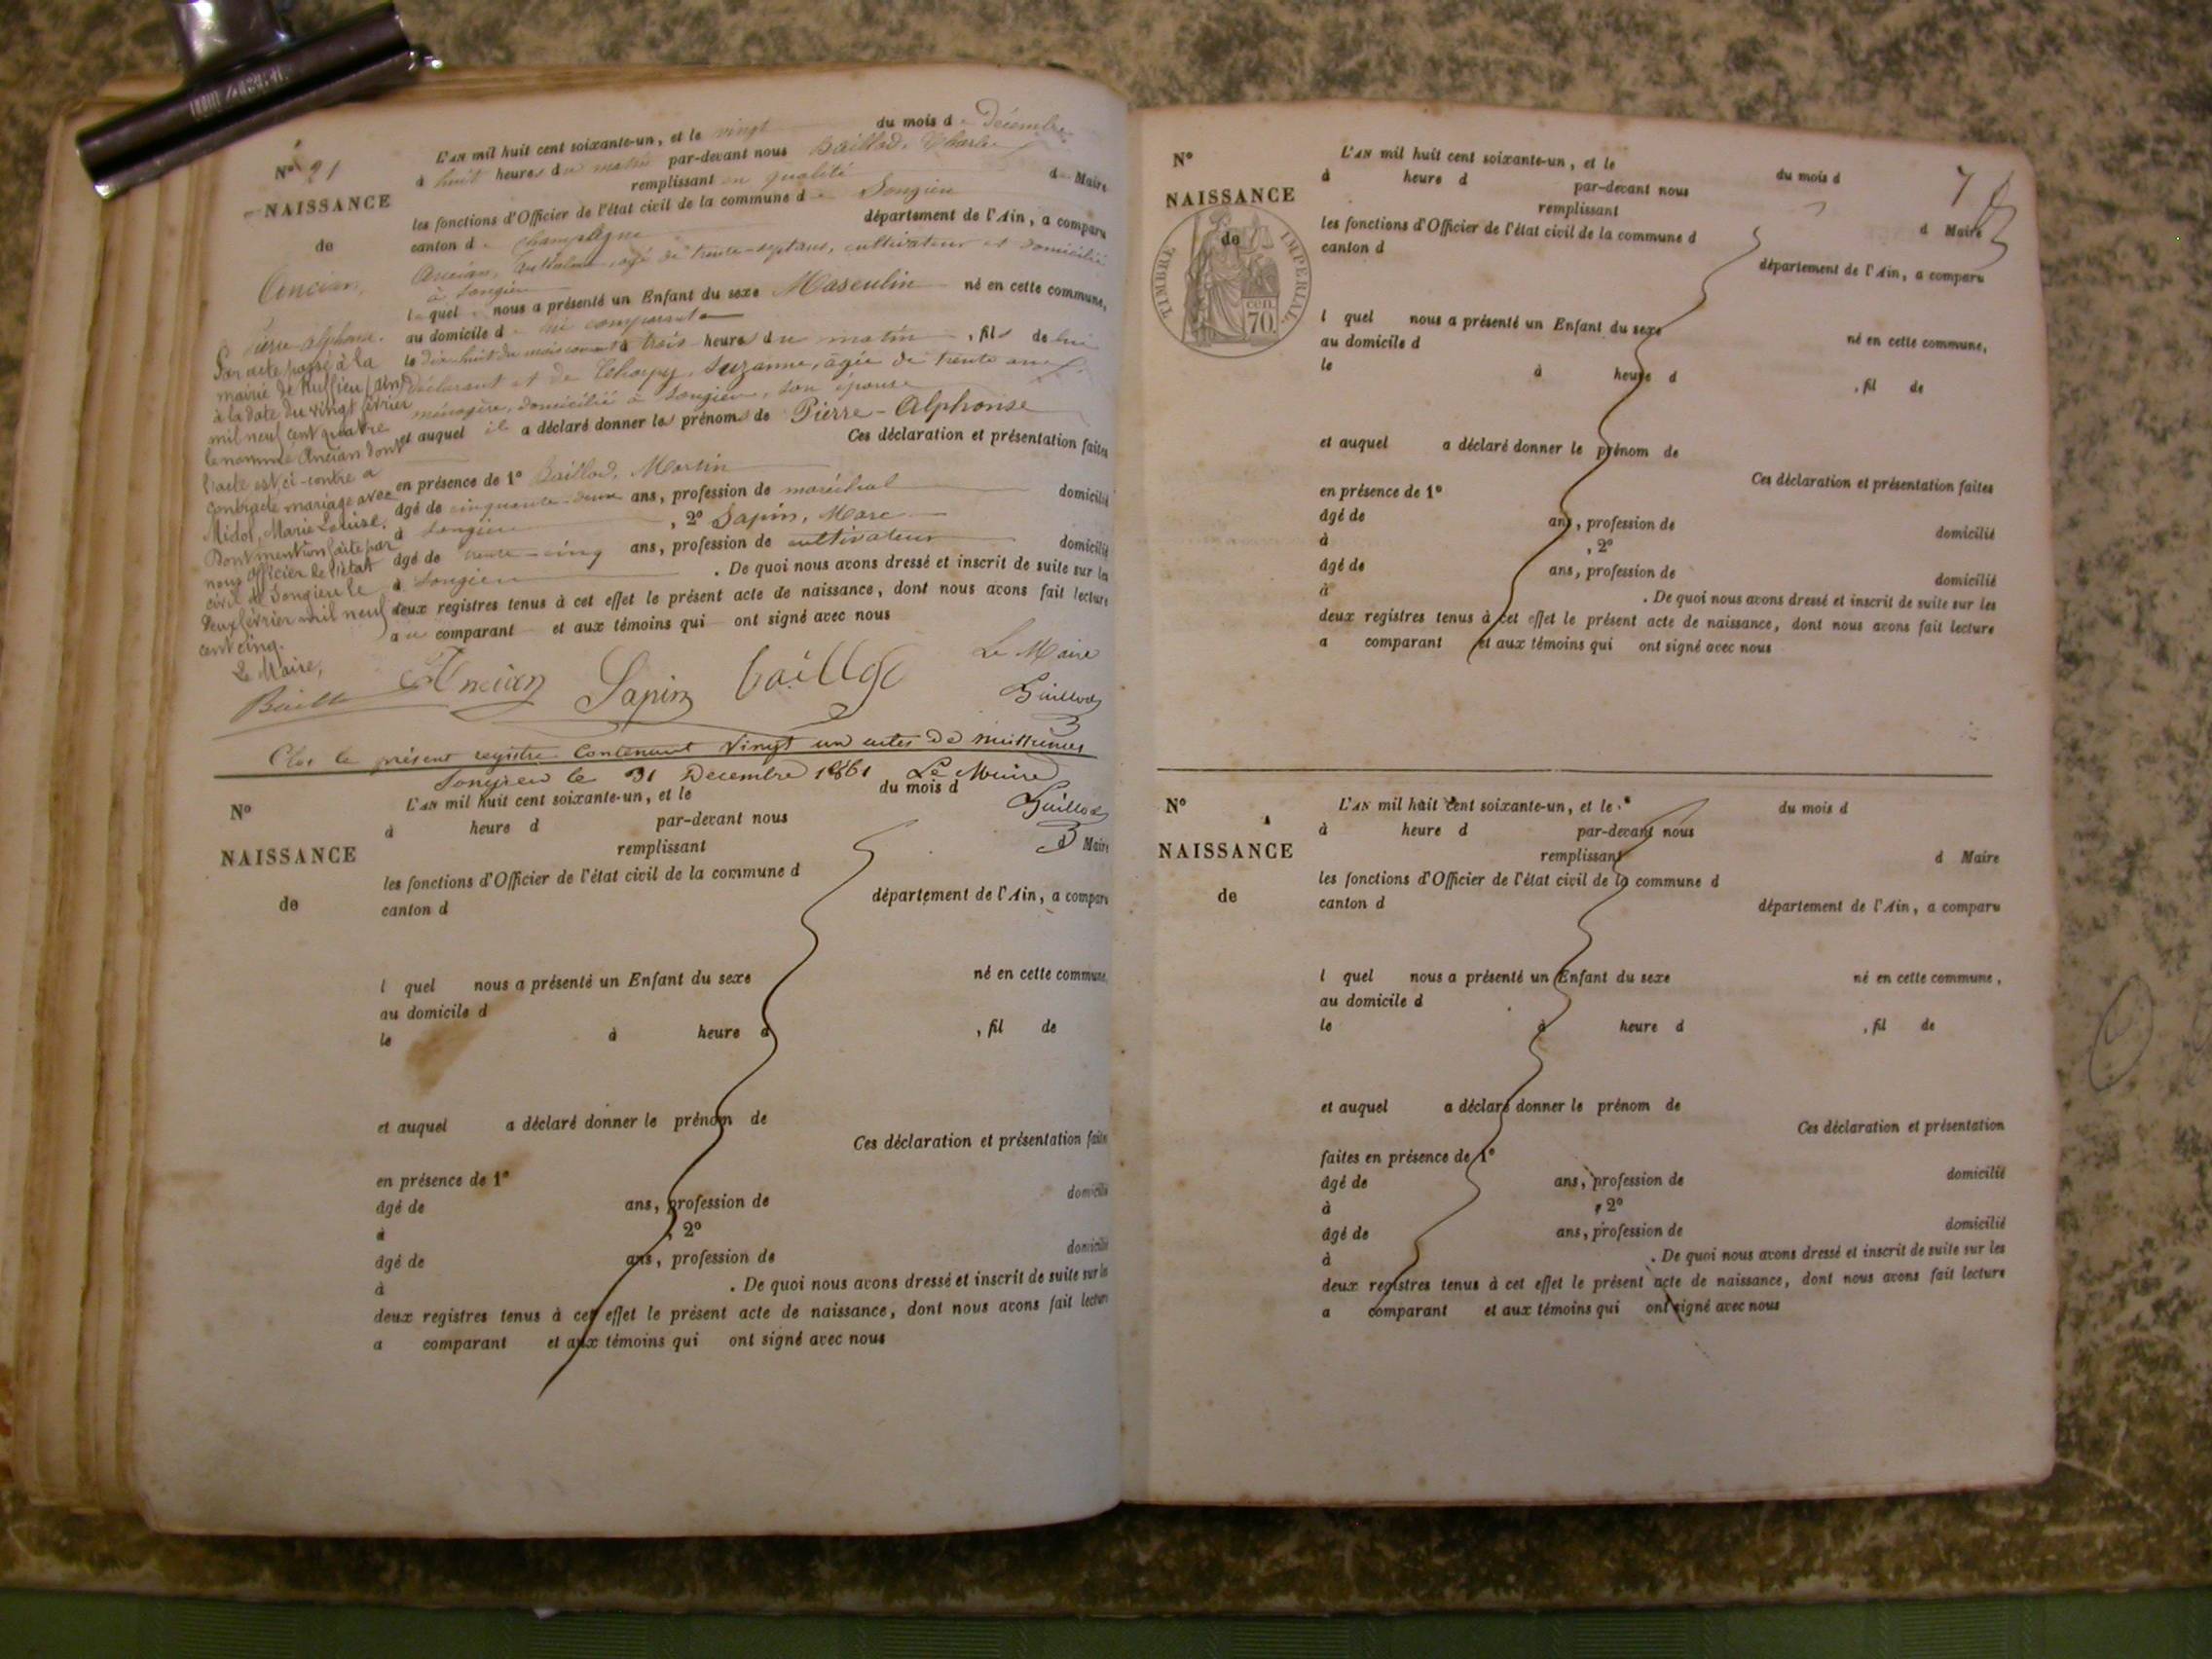 N° 21
NAISSANCE
de
Ancian,
Pierre alphonse.
Par acte passé à la
mairie de Ruffieu (Ain)
à la date du vingt février
mil neuf cent quatre
le nommé Ancian dont
l'acte est ci-contre a
contracté mariage avec
Midol, Marie Louise.
Dont mention faite par
nous Officier de l'état
civil de Songieu le
deux février mil neuf
cent cinq.
Le Maire,
L'AN mil huit cent soixante-un, et le vingt du mois d Décembre
à huit heures du matin par-devant nous Baillod, Charles
remplissant en qualité d Maire
les fonctions d'Officier de l'état civil de la commune d Songieu
canton d Champagne département de l'Ain, a comparu
Ancian, agé de trente-sept ans, cultivateur et domicilié
à Songieu
lequel nous a présenté un Enfant du sexe Masculin né en cette commune,
au domicile d comparant
le dix huit du mois courant à trois heures du matin, fils de lui
déclarant et de Charpy, Suzanne, agée de trente ans
ménagère, domicilié à Songieu, son épouse
et auquel il a déclaré donner les prénoms de Pierre-Alphonse
Ces déclaration et présentation faites
en présence de 1° Baillod, Martin
âgé de cinquante-deux ans, profession de maréchal domicilié
à Songieu, 2° Sapin, Marc
âgé de trente-cinq ans, profession de cultivateur domicilié
à Songieu. De quoi nous avons dressé et inscrit de suite sur les
deux registres tenus à cet effet le présent acte de naissance, dont nous avons fait lecture
au comparant et aux témoins qui ont signé avec nous
Le Maire
Ancian Sapin Baillod Baillod
Clos le présent registre contenant vingt un actes de naissances
Songieu le 31 Decembre 1861 Le Maire
Baillod
N°
NAISSANCE
de
L'AN mil huit cent soixante-un, et le du mois d
à heure d par-devant nous
remplissant d Maire
les fonctions d'Officier de l'état civil de la commune d
canton d département de l'Ain, a comparu
l quel nous a présenté un Enfant du sexe né en cette commune,
au domicile d
le à heure d , fil de
et auquel a déclaré donner le prénom de
Ces déclaration et présentation faites
en présence de 1°
âgé de ans, profession de domicilié
à , 2°
âgé de ans, profession de domicilié
à . De quoi nous avons dressé et inscrit de suite sur les
deux registres tenus à cet effet le présent acte de naissance, dont nous avons fait lecture
a comparant et aux témoins qui ont signé avec nous
7
N°
NAISSANCE
de
TIMBRE IMPERIAL
70 cen.
L'AN mil huit cent soixante-un, et le du mois d
à heure d par-devant nous
remplissant d Maire
les fonctions d'Officier de l'état civil de la commune d
canton d département de l'Ain, a comparu
l quel nous a présenté un Enfant du sexe né en cette commune,
au domicile d
le à heure d , fil de
et auquel a déclaré donner le prénom de
Ces déclaration et présentation faites
en présence de 1°
âgé de ans, profession de domicilié
à , 2°
âgé de ans, profession de domicilié
à . De quoi nous avons dressé et inscrit de suite sur les
deux registres tenus à cet effet le présent acte de naissance, dont nous avons fait lecture
a comparant et aux témoins qui ont signé avec nous
N°
NAISSANCE
de
L'AN mil huit cent soixante-un, et le du mois d
à heure d par-devant nous
remplissant d Maire
les fonctions d'Officier de l'état civil de la commune d
canton d département de l'Ain, a comparu
l quel nous a présenté un Enfant du sexe né en cette commune,
au domicile d
le à heure d , fil de
et auquel a déclaré donner le prénom de
Ces déclaration et présentation
faites en présence de 1°
âgé de ans, profession de domicilié
à , 2°
âgé de ans, profession de domicilié
à . De quoi nous avons dressé et inscrit de suite sur les
deux registres tenus à cet effet le présent acte de naissance, dont nous avons fait lecture
a comparant et aux témoins qui ont signé avec nous